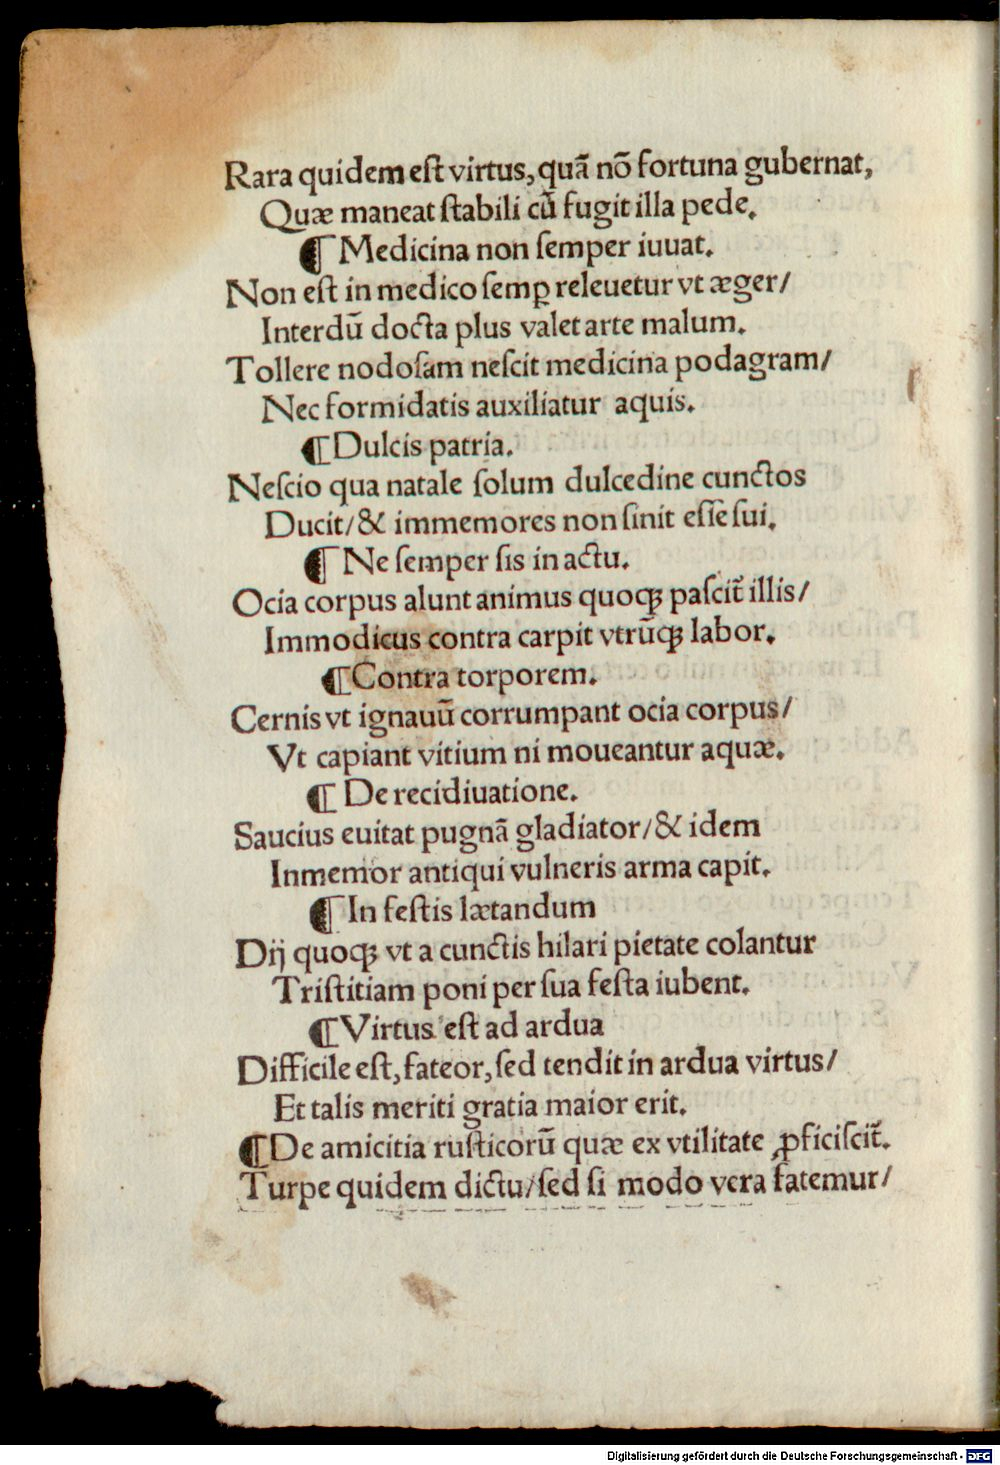 Rara quidem est virtus, quā nō fortuna gubernat,
Quæ maneat stabili cū fugit illa pede.
¶ Medicina non semper iuuat.
Non est in medico semꝑ releuetur vt æger/
Interdū docta plus valet arte malum.
Tollere nodosam nescit medicina podagram/
Nec formidatis auxiliatur aquis.
¶ Dulcis patria.
Nescio qua natale solum dulcedine cunctos
Ducit/ & immemores non sinit esse sui.
¶ Ne semper sis in actu.
Ocia corpus alunt animus quoqꝫ pascit̄ illis/
Immodicus contra carpit vtrūqꝫ labor.
¶ Contra torporem.
Cernis vt ignauū corrumpant ocia corpus/
Vt capiant vitium ni moueantur aquæ.
¶ De recidiuatione.
Saucius euitat pugnā gladiator/ & idem
Inmemor antiqui vulneris arma capit.
¶ In festis lætandum
Dij quoqꝫ vt a cunctis hilari pietate colantur
Tristitiam poni per sua festa iubent.
¶ Virtus est ad ardua
Difficile est, fateor, sed tendit in ardua virtus/
Et talis meriti gratia maior erit.
¶ De amicitia rusticorū quæ ex vtilitate ꝓficiscit̄.
Turpe quidem dictu/ sed si modo vera fatemur/
Digitalisierung gefördert durch die Deutsche Forschungsgemeinschaft - DFG